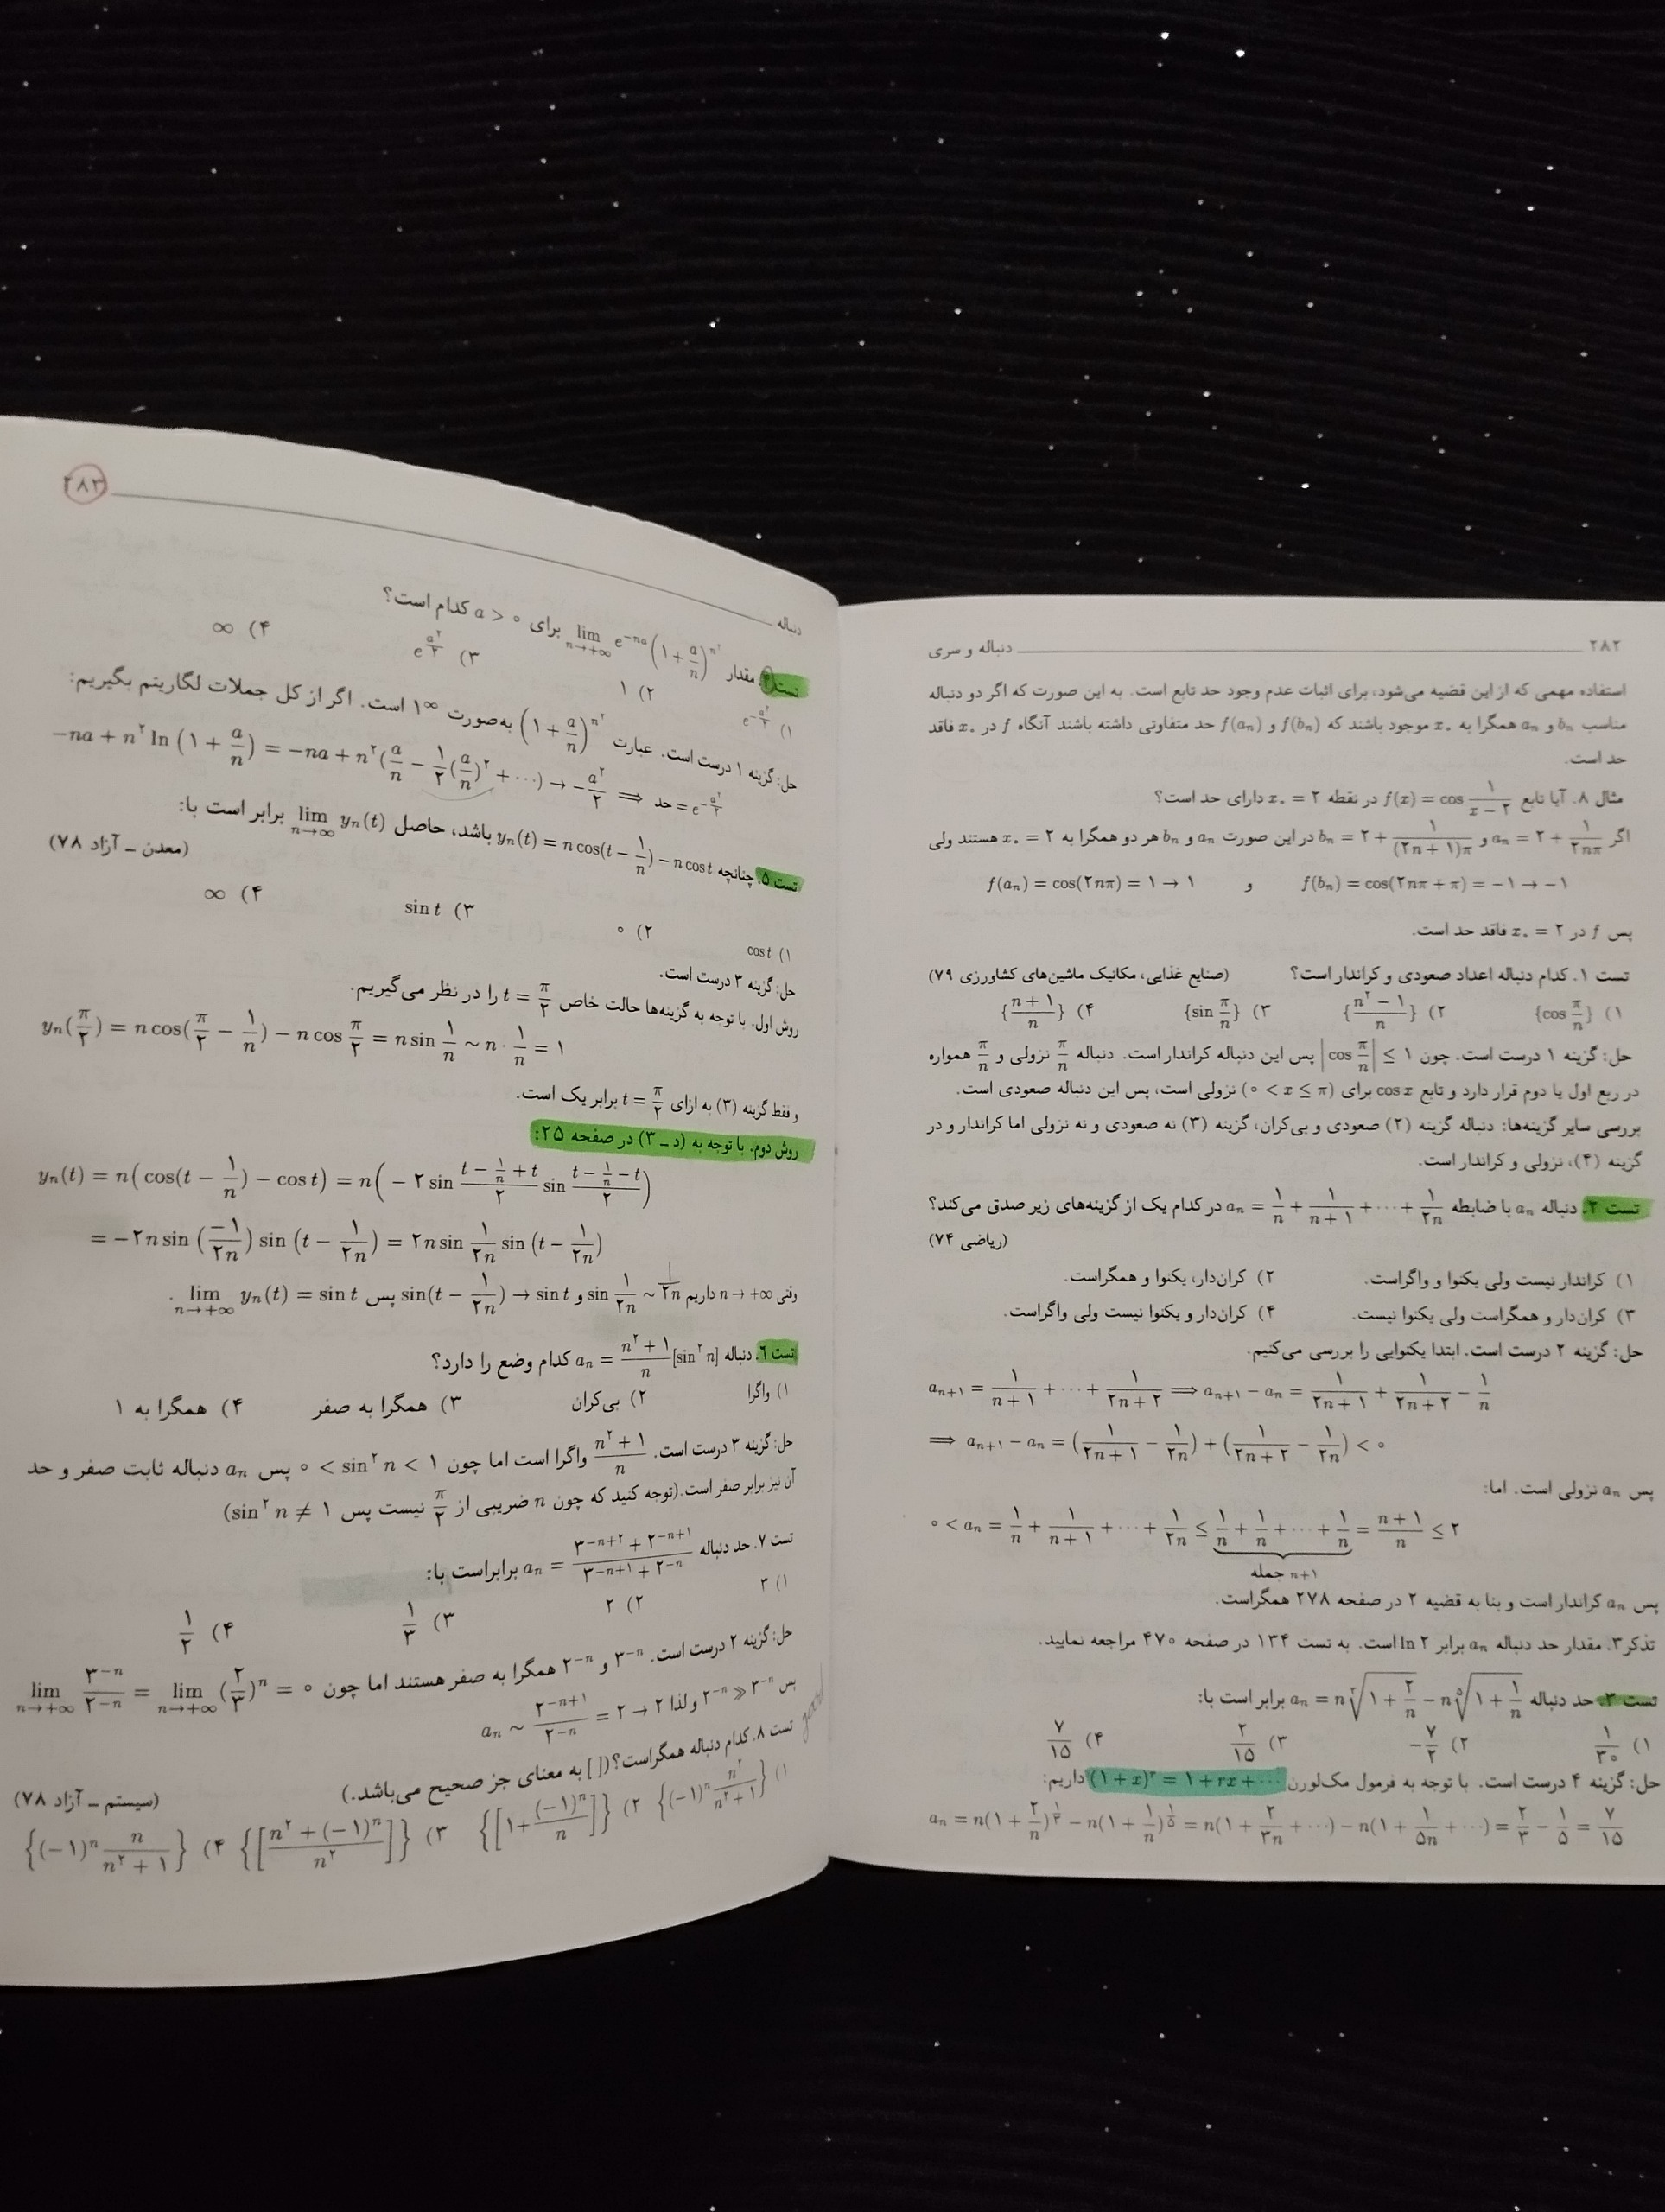 ۲۸۲ دنباله و سری
استفاده مهمی که از این قضیه می‌شود، برای اثبات عدم وجود حد تابع است. به این صورت که اگر دو دنباله
مناسب bₙ و aₙ همگرا به x₀ موجود باشند که f(bₙ) و f(aₙ) حد متفاوتی داشته باشند آنگاه f در x₀ فاقد
حد است.
مثال ۸. آیا تابع f(x) = cos ۱/(x − ۲) در نقطه x₀ = ۲ دارای حد است؟
اگر aₙ = ۲ + ۱/(۲nπ) و bₙ = ۲ + ۱/((۲n + ۱)π) در این صورت aₙ و bₙ هر دو همگرا به x₀ = ۲ هستند ولی
f(aₙ) = cos(۲nπ) = ۱ → ۱ و f(bₙ) = cos(۲nπ + π) = −۱ → −۱
پس f در x₀ = ۲ فاقد حد است.
تست ۱. کدام دنباله اعداد صعودی و کراندار است؟ (صنایع غذایی، مکانیک ماشین‌های کشاورزی ۷۹)
۱) {cos π/n} ۲) {(n² − ۱)/n} ۳) {sin π/n} ۴) {(n + ۱)/n}
حل: گزینه ۱ درست است. چون |cos π/n| ≤ ۱ پس این دنباله کراندار است. دنباله π/n نزولی و π/n همواره
در ربع اول یا دوم قرار دارد و تابع cos x برای (۰ < x ≤ π) نزولی است، پس این دنباله صعودی است.
بررسی سایر گزینه‌ها: دنباله گزینه (۲) صعودی و بی‌کران، گزینه (۳) نه صعودی و نه نزولی اما کراندار و در
گزینه (۴)، نزولی و کراندار است.
تست ۲. دنباله aₙ با ضابطه aₙ = ۱/n + ۱/(n+۱) + ⋯ + ۱/(۲n) در کدام یک از گزینه‌های زیر صدق می‌کند؟
(ریاضی ۷۴)
۱) کراندار نیست ولی یکنوا و واگراست. ۲) کران‌دار، یکنوا و همگراست.
۳) کران‌دار و همگراست ولی یکنوا نیست. ۴) کران‌دار و یکنوا نیست ولی واگراست.
حل: گزینه ۲ درست است. ابتدا یکنوایی را بررسی می‌کنیم.
aₙ₊₁ = ۱/(n+۱) + ⋯ + ۱/(۲n+۲) ⟹ aₙ₊₁ − aₙ = ۱/(۲n+۱) + ۱/(۲n+۲) − ۱/n
⟹ aₙ₊₁ − aₙ = (۱/(۲n+۱) − ۱/(۲n)) + (۱/(۲n+۲) − ۱/(۲n)) < ۰
پس aₙ نزولی است. اما:
۰ < aₙ = ۱/n + ۱/(n+۱) + ⋯ + ۱/(۲n) ≤ ۱/n + ۱/n + ⋯ + ۱/n = (n+۱)/n ≤ ۲
n+۱ جمله
پس aₙ کراندار است و بنا به قضیه ۲ در صفحه ۲۷۸ همگراست.
تذکر۳. مقدار حد دنباله aₙ برابر ln ۲ است. به تست ۱۳۴ در صفحه ۴۷۰ مراجعه نمایید.
تست ۳. حد دنباله aₙ = n∛(۱ + ۲/n) − n⁵√(۱ + ۱/n) برابر است با:
۱) ۱/۳۰ ۲) −۷/۲ ۳) ۲/۱۵ ۴) ۷/۱۵
حل: گزینه ۴ درست است. با توجه به فرمول مک‌لورن (۱ + x)ʳ = ۱ + rx + ⋯ داریم:
aₙ = n(۱ + ۲/n)^(۱/۳) − n(۱ + ۱/n)^(۱/۵) = n(۱ + ۲/(۳n) + ⋯) − n(۱ + ۱/(۵n) + ⋯) = ۲/۳ − ۱/۵ = ۷/۱۵
دنباله ۲۸۳
تست ۴. مقدار lim n→+∞ e^(−na) (۱ + a/n)^(n²) برای a > ۰ کدام است؟
۱) e^(−a²/۲) ۲) ۱ ۳) e^(a²/۲) ۴) ∞
حل: گزینه ۱ درست است. عبارت (۱ + a/n)^(n²) به‌صورت ۱^∞ است. اگر از کل جملات لگاریتم بگیریم:
−na + n² ln(۱ + a/n) = −na + n²(a/n − ۱/۲(a/n)² + ⋯) → −a²/۲ ⟹ حد = e^(−a²/۲)
تست ۵. چنانچه yₙ(t) = n cos(t − ۱/n) − n cos t باشد، حاصل lim n→∞ yₙ(t) برابر است با:
(معدن ـ آزاد ۷۸)
۱) cos t ۲) ۰ ۳) sin t ۴) ∞
حل: گزینه ۳ درست است.
روش اول. با توجه به گزینه‌ها حالت خاص t = π/۲ را در نظر می‌گیریم.
yₙ(π/۲) = n cos(π/۲ − ۱/n) − n cos π/۲ = n sin ۱/n ∼ n · ۱/n = ۱
و فقط گزینه (۳) به ازای t = π/۲ برابر یک است.
روش دوم. با توجه به (د ـ ۳) در صفحه ۲۵:
yₙ(t) = n(cos(t − ۱/n) − cos t) = n(−۲ sin (t − ۱/n + t)/۲ sin (t − ۱/n − t)/۲)
= −۲n sin(−۱/(۲n)) sin(t − ۱/(۲n)) = ۲n sin ۱/(۲n) sin(t − ۱/(۲n))
وقتی n → +∞ داریم sin ۱/(۲n) ∼ ۱/(۲n) و sin(t − ۱/(۲n)) → sin t پس lim n→+∞ yₙ(t) = sin t.
تست ۶. دنباله aₙ = (n² + ۱)/n [sin² n] کدام وضع را دارد؟
۱) واگرا ۲) بی‌کران ۳) همگرا به صفر ۴) همگرا به ۱
حل: گزینه ۳ درست است. (n² + ۱)/n واگرا است اما چون ۰ < sin² n < ۱ پس aₙ دنباله ثابت صفر و حد
آن نیز برابر صفر است.(توجه کنید که چون n ضریبی از π/۲ نیست پس sin² n ≠ ۱)
تست ۷. حد دنباله aₙ = (۳^(−n+۲) + ۲^(−n+۱))/(۳^(−n+۱) + ۲^(−n)) برابراست با:
۱) ۳ ۲) ۲ ۳) ۱/۳ ۴) ۱/۲
حل: گزینه ۲ درست است. ۳^(−n) و ۲^(−n) همگرا به صفر هستند اما چون lim n→+∞ ۳^(−n)/۲^(−n) = lim n→+∞ (۲/۳)^n = ۰
پس ۲^(−n) ≫ ۳^(−n) ولذا aₙ ∼ ۲^(−n+۱)/۲^(−n) = ۲ → ۲
تست ۸. کدام دنباله همگراست؟([ ] به معنای جز صحیح می‌باشد.) (سیستم ـ آزاد ۷۸)
۱) {(−۱)ⁿ n²/(n² + ۱)} ۲) {[۱ + (−۱)ⁿ/n]} ۳) {[(n² + (−۱)ⁿ)/n²]} ۴) {(−۱)ⁿ n/(n² + ۱)}